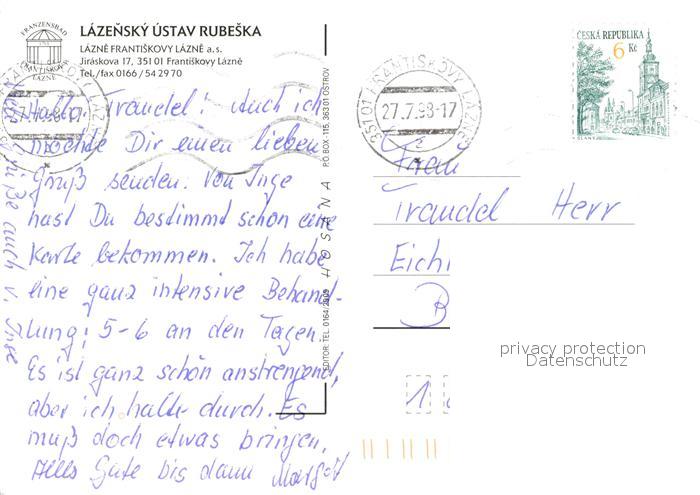 FRANZENSBAD
FRANTIŠKOVY
LÁZNĚ
LÁZEŇSKÝ ÚSTAV RUBEŠKA
LÁZNĚ FRANTIŠKOVY LÁZNĚ a.s.
Jiráskova 17, 351 01 Františkovy Lázně
Tel./fax 0166 / 54 29 70
Hallo Traudel! Auch ich
möchte Dir einen lieben
Gruß senden. Von Inge
hast Du bestimmt schon eine
Karte bekommen. Ich habe
eine ganz intensive Behand-
lung; 5-6 an den Tagen.
Es ist ganz schön anstrengend,
aber ich halte durch. Es
muß doch etwas bringen.
Alles Gute bis dann Margot
Grüße auch v. Inge
EDITOR: TEL. 0164/2909 HOSANA P.O. BOX 115, 363 01 OSTROV
351 01 FRANTIŠKOVY LÁZNĚ
27.7.98-17
ČESKÁ REPUBLIKA
6 Kč
SLANÝ
Frau
Traudel Herr
Eichi
B
1
privacy protection
Datenschutz